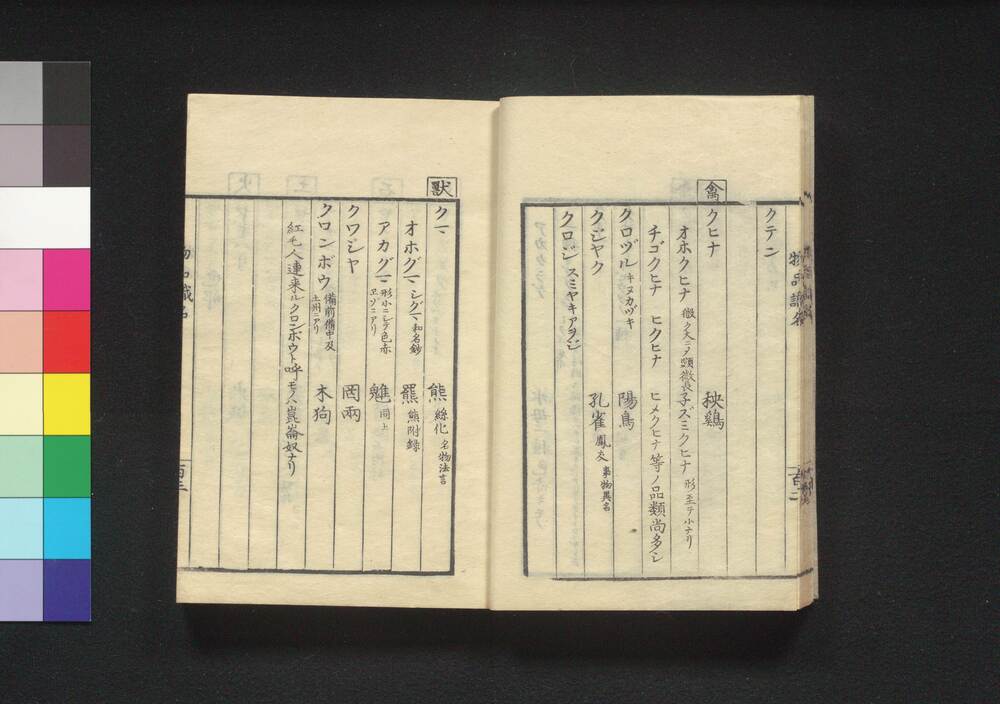 クテン
禽
クヒナ 秧鷄
オホクヒナ 微ク大ニメ頭微長 子ズミクヒナ 形至テ小ナリ
チゴクヒナ ヒクヒナ ヒメクヒナ等ノ品類尚多シ
クロヅル キヌカヅキ 陽鳥
クジヤク 孔雀 鳳友 事物異名
クロジ スミヤキアヲジ
物品識名
百二
獸
クマ 熊 絲化 名物法言
オホグマ シグマ 和名鈔 羆 熊附録
アカグマ 形小ニシテ色赤 ヱゾニアリ 魋 同上
クワジヤ 罔兩
クロンボウ 備前備中及 土州ニアリ 木狗
紅毛人連来ルクロンボウト呼モノハ崑崙奴ナリ
物品識名
百三